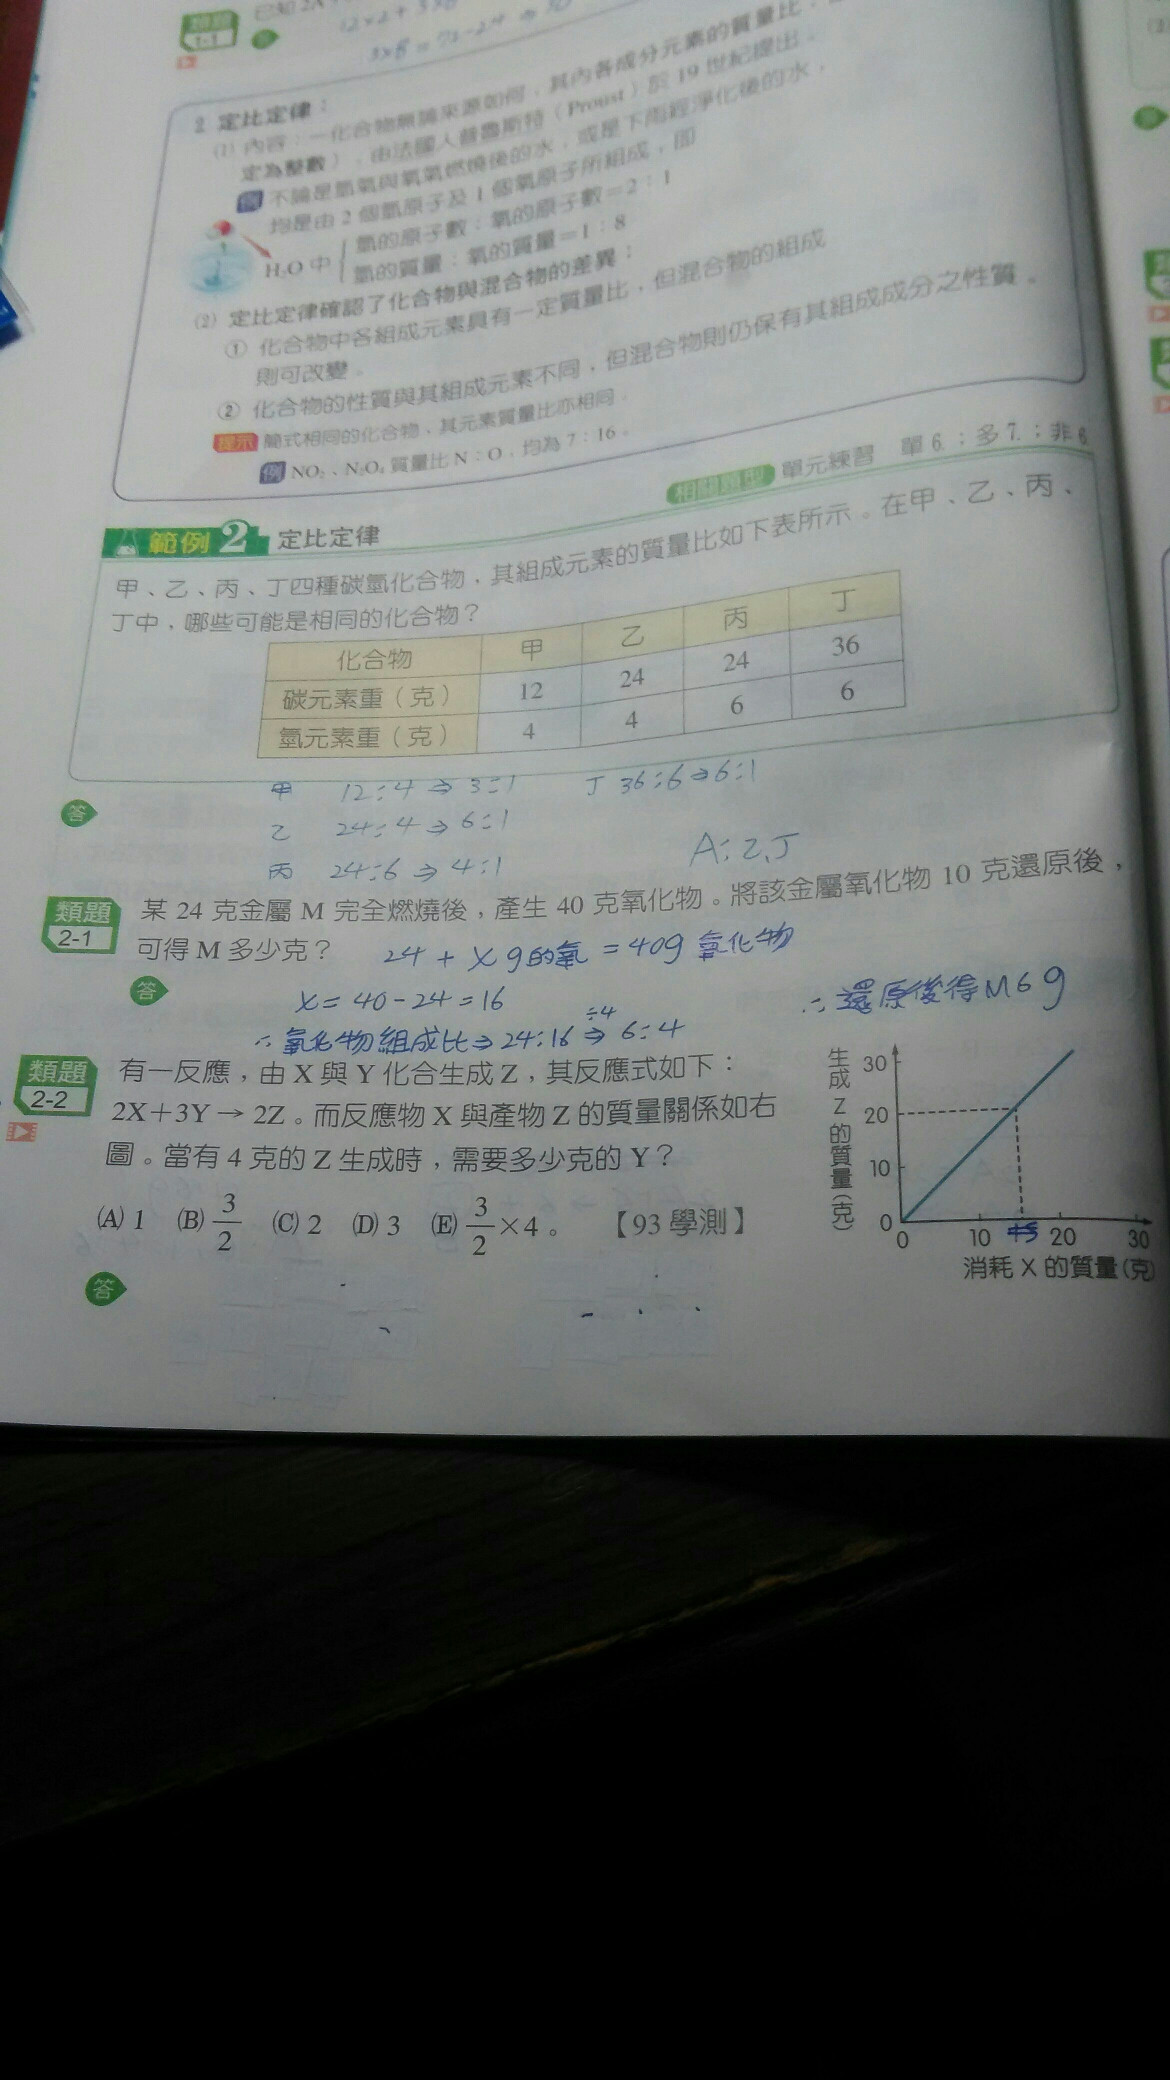 類題
1-1
已知 2A
12×2+3×8
3×8=72-24
2. 定比定律：
(1) 內容：一化合物無論來源如何，其內各成分元素的質量比，
定為整數），由法國人普魯斯特（Proust）於 19 世紀提出。
例 不論是氫氣與氧氣燃燒後的水，或是下雨經淨化後的水，
均是由 2 個氫原子及 1 個氧原子所組成，即
H₂O 中
氫的原子數：氧的原子數＝2：1
氫的質量：氧的質量＝1：8
(2) 定比定律確認了化合物與混合物的差異：
① 化合物中各組成元素具有一定質量比，但混合物的組成
則可改變。
② 化合物的性質與其組成元素不同，但混合物則仍保有其組成成分之性質。
提示 簡式相同的化合物，其元素質量比亦相同。
例 NO₂、N₂O₄ 質量比 N：O，均為 7：16。
相關題型 單元練習 單 6.；多 7.；非 6.
範例 2 定比定律
甲、乙、丙、丁四種碳氫化合物，其組成元素的質量比如下表所示。在甲、乙、丙、
丁中，哪些可能是相同的化合物？
化合物 甲 乙 丙 丁
碳元素重（克） 12 24 24 36
氫元素重（克） 4 4 6 6
答
甲 12:4⇒3:1 丁 36:6⇒6:1
乙 24:4⇒6:1
丙 24:6⇒4:1
A:乙、丁
類題
2-1
某 24 克金屬 M 完全燃燒後，產生 40 克氧化物。將該金屬氧化物 10 克還原後，
可得 M 多少克？
24+Xg的氧=40g氧化物
答
X=40-24=16
∴還原後得M6g
∴氧化物組成比⇒24:16⇒6:4
÷4
類題
2-2
有一反應，由 X 與 Y 化合生成 Z，其反應式如下：
2X＋3Y→2Z。而反應物 X 與產物 Z 的質量關係如右
圖。當有 4 克的 Z 生成時，需要多少克的 Y？
(A) 1 (B) 3/2 (C) 2 (D) 3 (E) 3/2 ×4。 【93 學測】
答
生成 Z 的質量(克)
30
20
10
0
0 10 15 20 30
消耗 X 的質量(克)